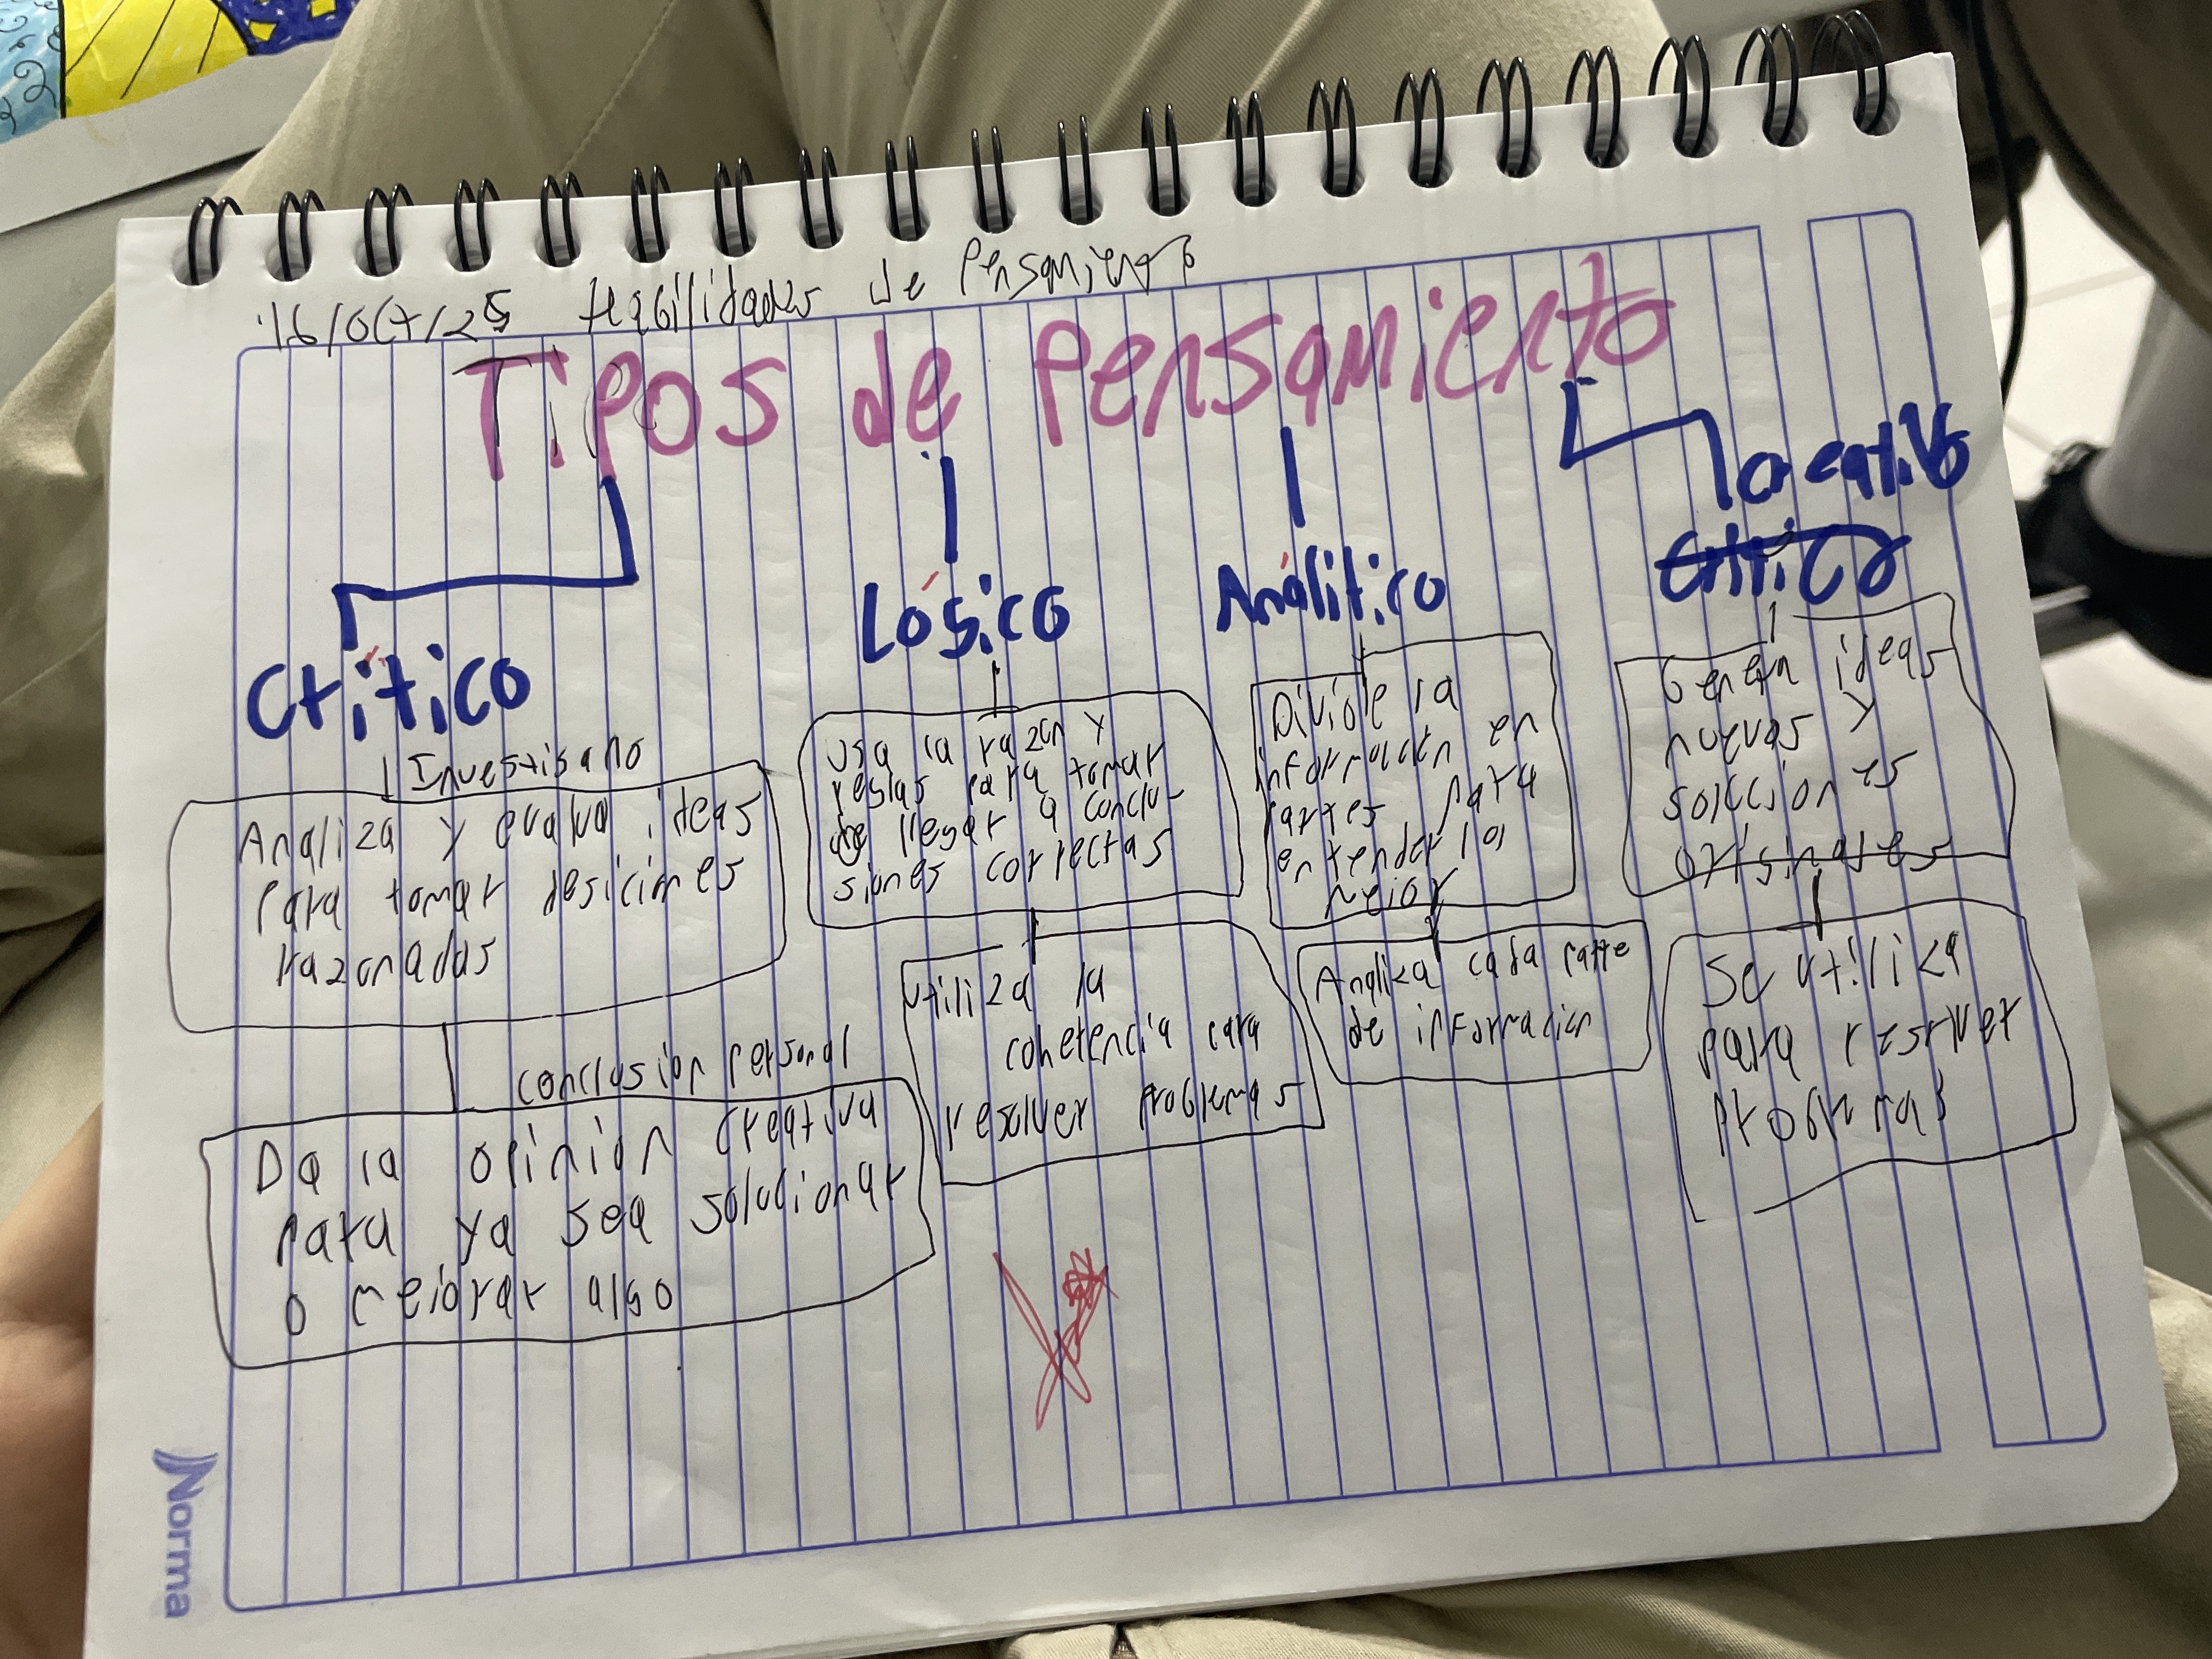 16/oct/25 Habilidades de Pensamiento
Tipos de Pensamiento
Crítico
Lógico
Análitico
Creativo
Critico
Investigano
Analiza y evalua ideas
para tomar desiciones
razonadas
conclusion personal
Da la opinion creativa
para ya sea solucionar
o mejorar algo
Usa la razon y
reglas para tomar
llegar a conclu-
siones correctas
Utiliza la
coherencia para
resolver problemas
Divide la
informacion en
partes para
entenderlos
mejor
Analiza cada parte
de informacion
Genera ideas
nuevas y
soluciones
originales
Se utiliza
para resolver
problemas
Norma